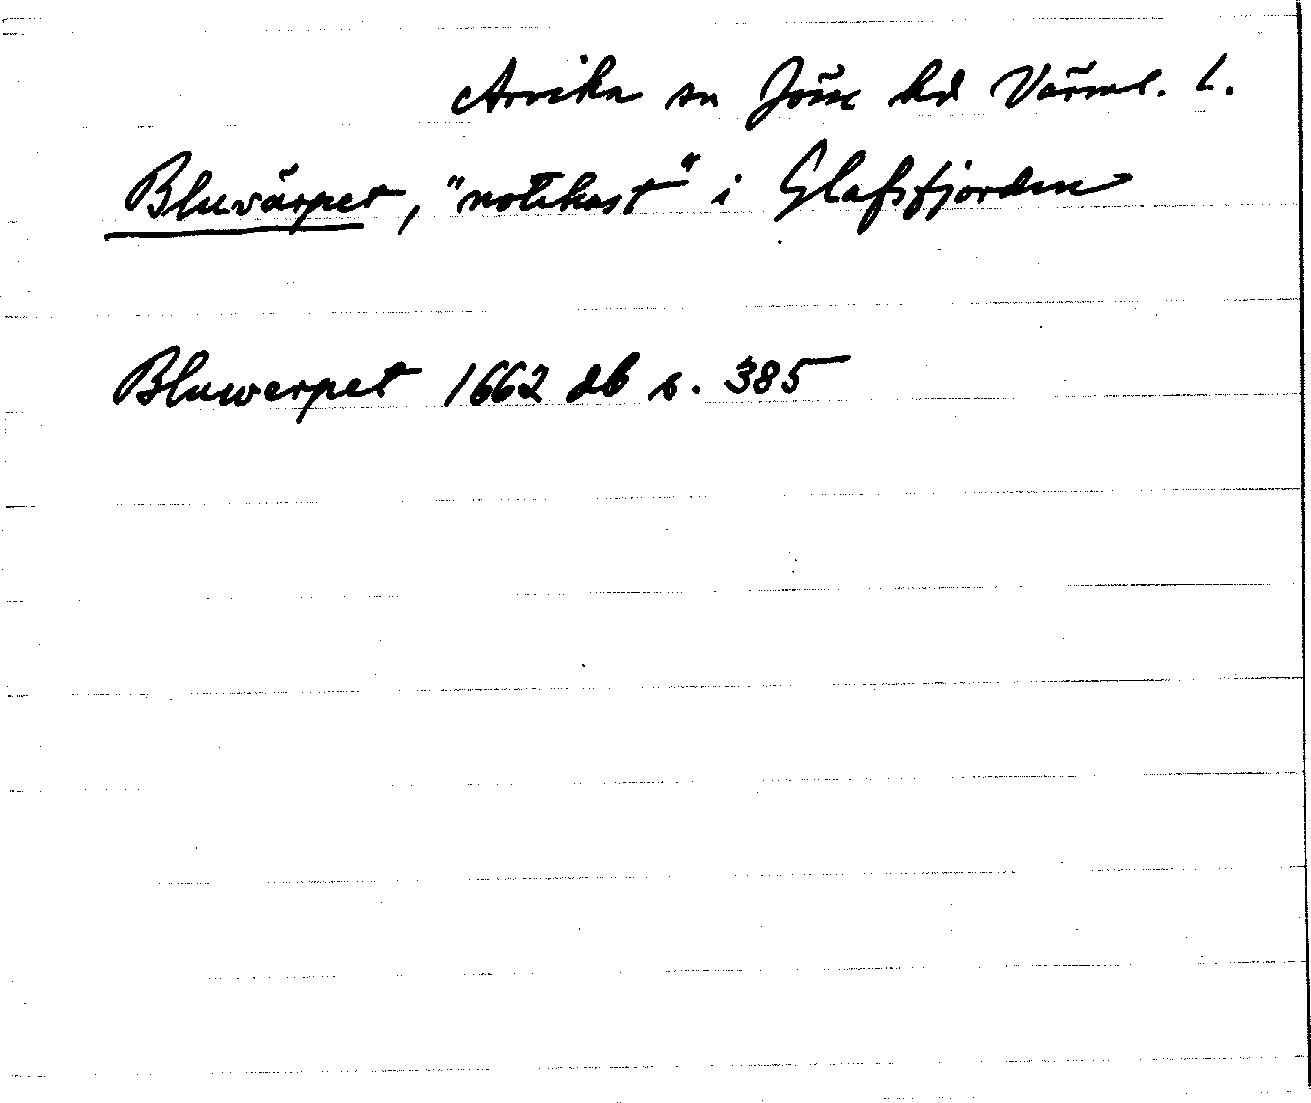 Arvika sn Jösse hd Värml. l.
Bluvärpet, "notkast" i Glafsfjorden
Bluwerpet 1662 db s. 385